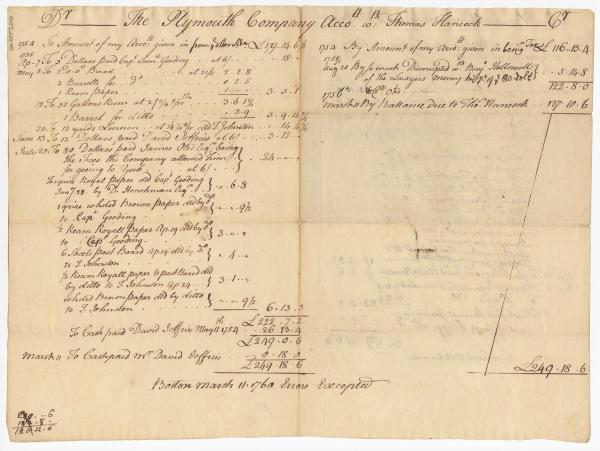 Dr The Plymouth Company Accott wth Thomas Hancock Cr
1754 To Amount of my Accott given in £179.14.6
1755
Ap. 7 To 3 Dollars paid Capt Saml Gooding at 6/ 18
May 3 To at 2/4 2.2.8
3 Barrells for do 0.2.5
1 Ream Paper 3.5.1
12 To 32 Gallons Rum at
1 Barrel for ditto 3.9
20 To 12 yards Linnen at T. Johnston
June 13 To 12 Dollars paid David Jeffries at 6/ 3.12
July 25 To 80 Dollars paid James Otis Esqr being
the Fees the Company allowed him
for going to York at 6/ 24
To 1 quire Royal Paper dld Capt Gooding
Jany 28 by D. Henchman Esqr 6.8
1 quire whited Brown Paper dld by do
to Capt Gooding 9½
½ Ream Royall Paper Ap. 19 dld by do
to Capt Gooding 3
6 Sheets Past Board Ap. 19 dld by do
to T. Johnston 4
½ Ream Royall paper & past Board dld
by ditto to T. Johnston Ap. 24 3.1
whited Brown Paper dld by ditto
to T. Johnston 9½ 6.13.3
£222.7.2
To Cash paid David Jeffries May 11th 1754 26.13.4
£249.0.6
March 11 To Cash paid Mr David Jeffries 0.18.0
£249.18.6
1754 By Amount of my Accott given in £116.13.4
1755
Aug 20 By so much Discounted wth Benj. Hallowell
of the Lawyers Money 5.14.8
122.8.0
1756
March By Ballance Due to Tho. Hancock 127.10.6
£249.18.6
Boston March 11. 1760 Errors Excepted